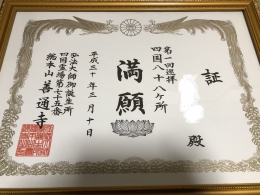 証
殿
第一回巡拝
四国八十八ケ所
満願
平成三十年三月十日
弘法大師御誕生所
四国霊場第七十五番
総本山善通寺